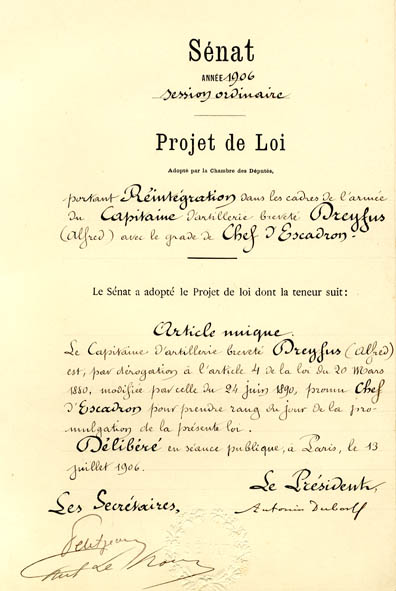 Sénat
ANNÉE 1906
session ordinaire
Projet de Loi
Adopté par la Chambre des Députés,
portant Réintégration dans les cadres de l'armée
du Capitaine d'artillerie breveté Dreyfus
(Alfred) avec le grade de Chef d'Escadron.
Le Sénat a adopté le Projet de loi dont la teneur suit :
Article unique.
Le Capitaine d'artillerie breveté Dreyfus (Alfred)
est, par dérogation à l'article 4 de la loi du 20 Mars
1880, modifiée par celle du 24 juin 1890, promu Chef
d'Escadron pour prendre rang du jour de la pro-
mulgation de la présente loi.
Délibéré en séance publique, à Paris, le 13
juillet 1906.
Le Président,
Les Secrétaires,
Antonin Dubost
Petitjean